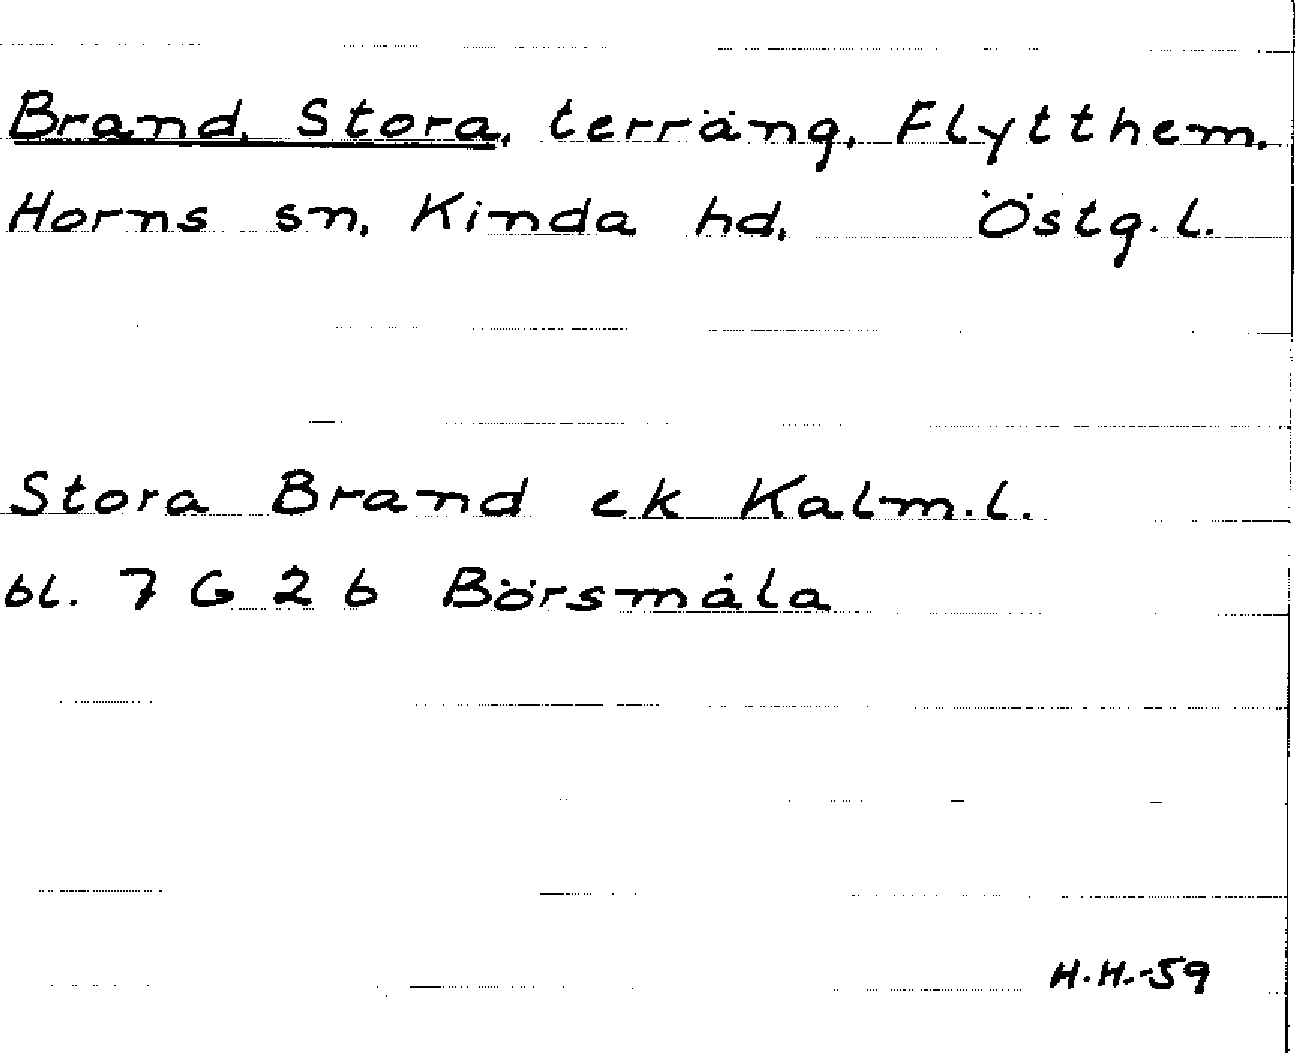 Brand, Stora, terräng, Flytthem.
Horns sn, Kinda hd, Östg.l.
Stora Brand ek Kalm.l.
bl. 7 G 2 b Börsmåla
H.H.-59